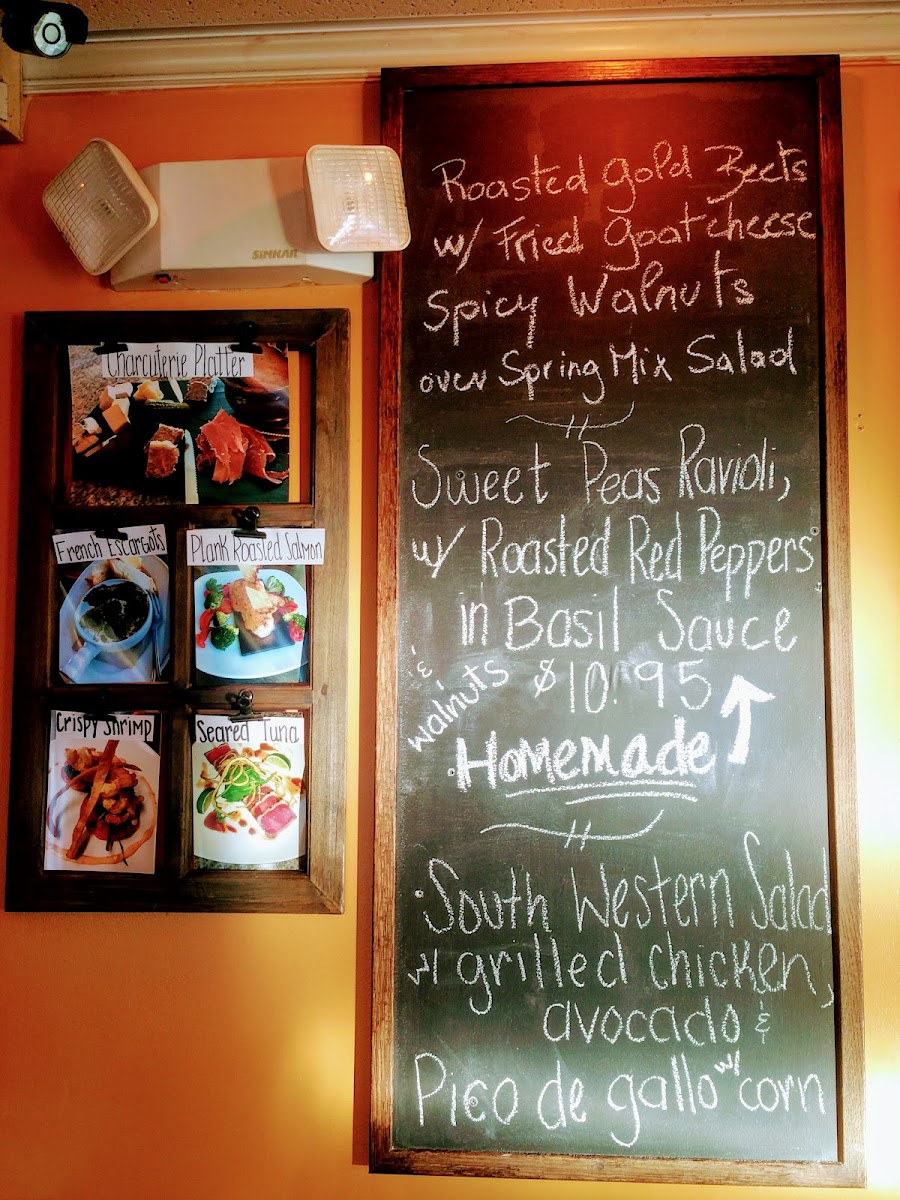 SIMKAR
Charcuterie Platter
French Escargots
Plank Roasted Salmon
Crispy Shrimp
Seared Tuna
Roasted gold Beets
w/ Fried goat cheese
Spicy Walnuts
over Spring Mix Salad
Sweet Peas Ravioli,
w/ Roasted Red Peppers
in Basil Sauce
& walnuts
$10.95
Homemade
South Western Salad
w/ grilled chicken,
avocado &
Pico de gallo w/ corn